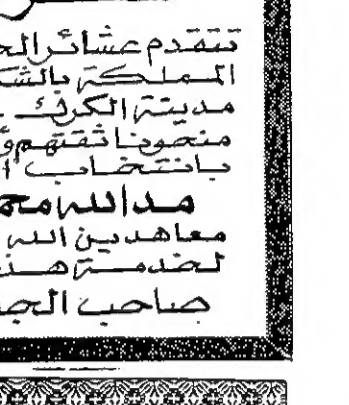 تتقدم عشائر
المملكة بالشكر
مدينة الكرك
منحونا ثقتهم
بانتخاب
مد الله
معاهدين الله
لخدمة
صاحب